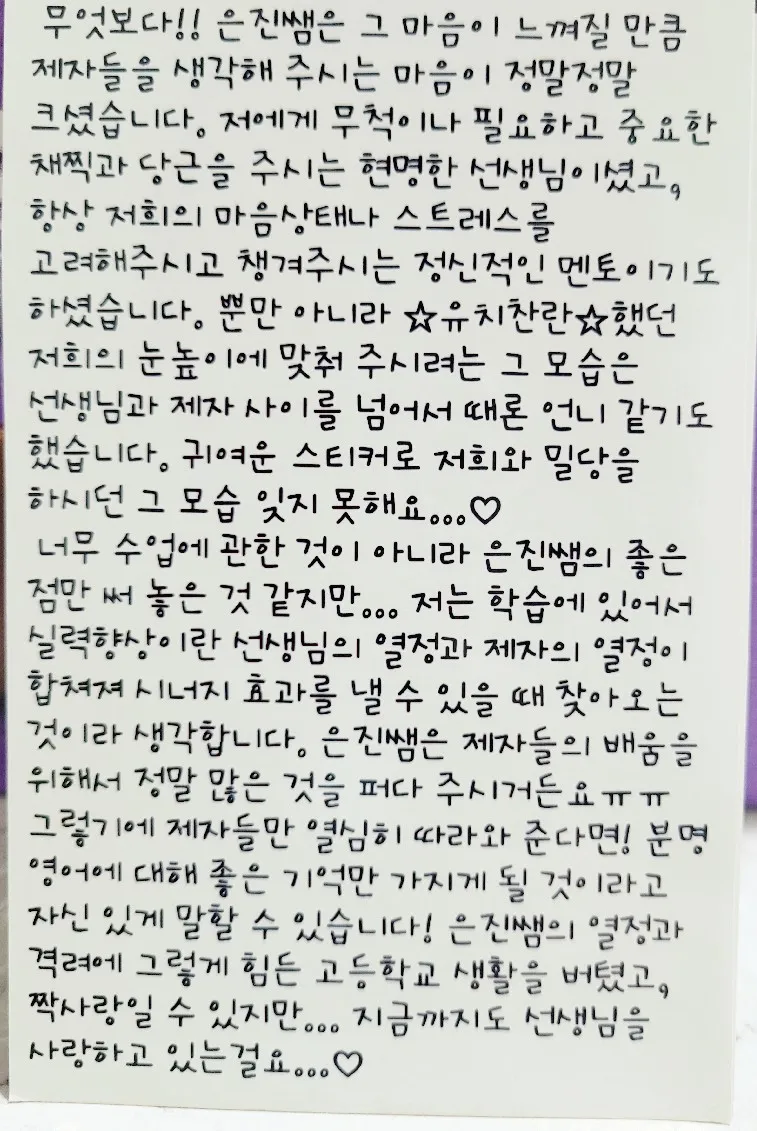 무엇보다!! 은진쌤은 그 마음이 느껴질 만큼
제자들을 생각해 주시는 마음이 정말정말
크셨습니다. 저에게 무척이나 필요하고 중요한
채찍과 당근을 주시는 현명한 선생님이셨고,
항상 저희의 마음상태나 스트레스를
고려해주시고 챙겨주시는 정신적인 멘토이기도
하셨습니다. 뿐만 아니라 ☆유치찬란☆했던
저희의 눈높이에 맞춰 주시려는 그 모습은
선생님과 제자 사이를 넘어서 때론 언니 같기도
했습니다. 귀여운 스티커로 저희와 밀당을
하시던 그 모습 잊지 못해요...♡
너무 수업에 관한 것이 아니라 은진쌤의 좋은
점만 써 놓은 것 같지만... 저는 학습에 있어서
실력향상이란 선생님의 열정과 제자의 열정이
합쳐져 시너지 효과를 낼 수 있을 때 찾아오는
것이라 생각합니다. 은진쌤은 제자들의 배움을
위해서 정말 많은 것을 퍼다 주시거든요ㅠㅠ
그렇기에 제자들만 열심히 따라와 준다면! 분명
영어에 대해 좋은 기억만 가지게 될 것이라고
자신 있게 말할 수 있습니다! 은진쌤의 열정과
격려에 그렇게 힘든 고등학교 생활을 버텼고,
짝사랑일 수 있지만... 지금까지도 선생님을
사랑하고 있는걸요...♡